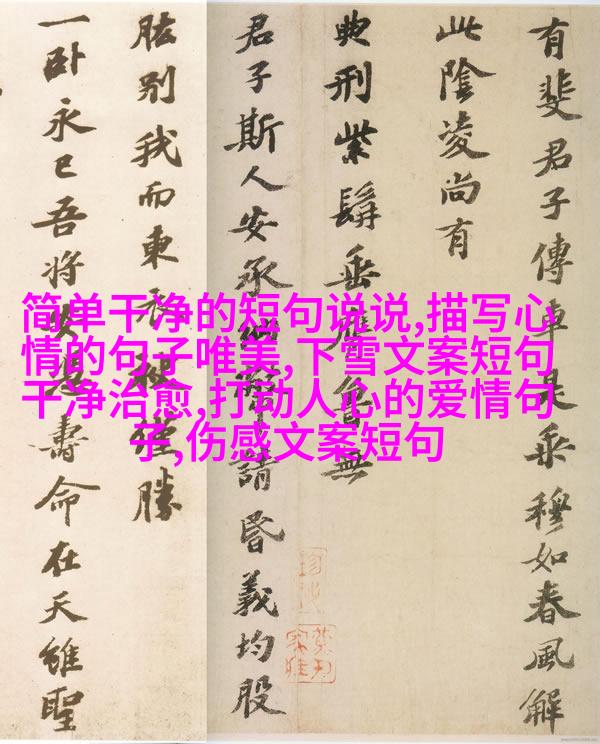 简单干净的短句说说,描写心
情的句子唯美,下雪文案短句
干净治愈,打动人心的爱情句
子,伤感文案短句
有斐君子傳車是乘穆如春風解
此陰凌尚有
典刑紫髯垂膺魯無
君子斯人安承請昏義均股
肱別我而東衣勝
一卧永已吾將安壽命在天雖聖